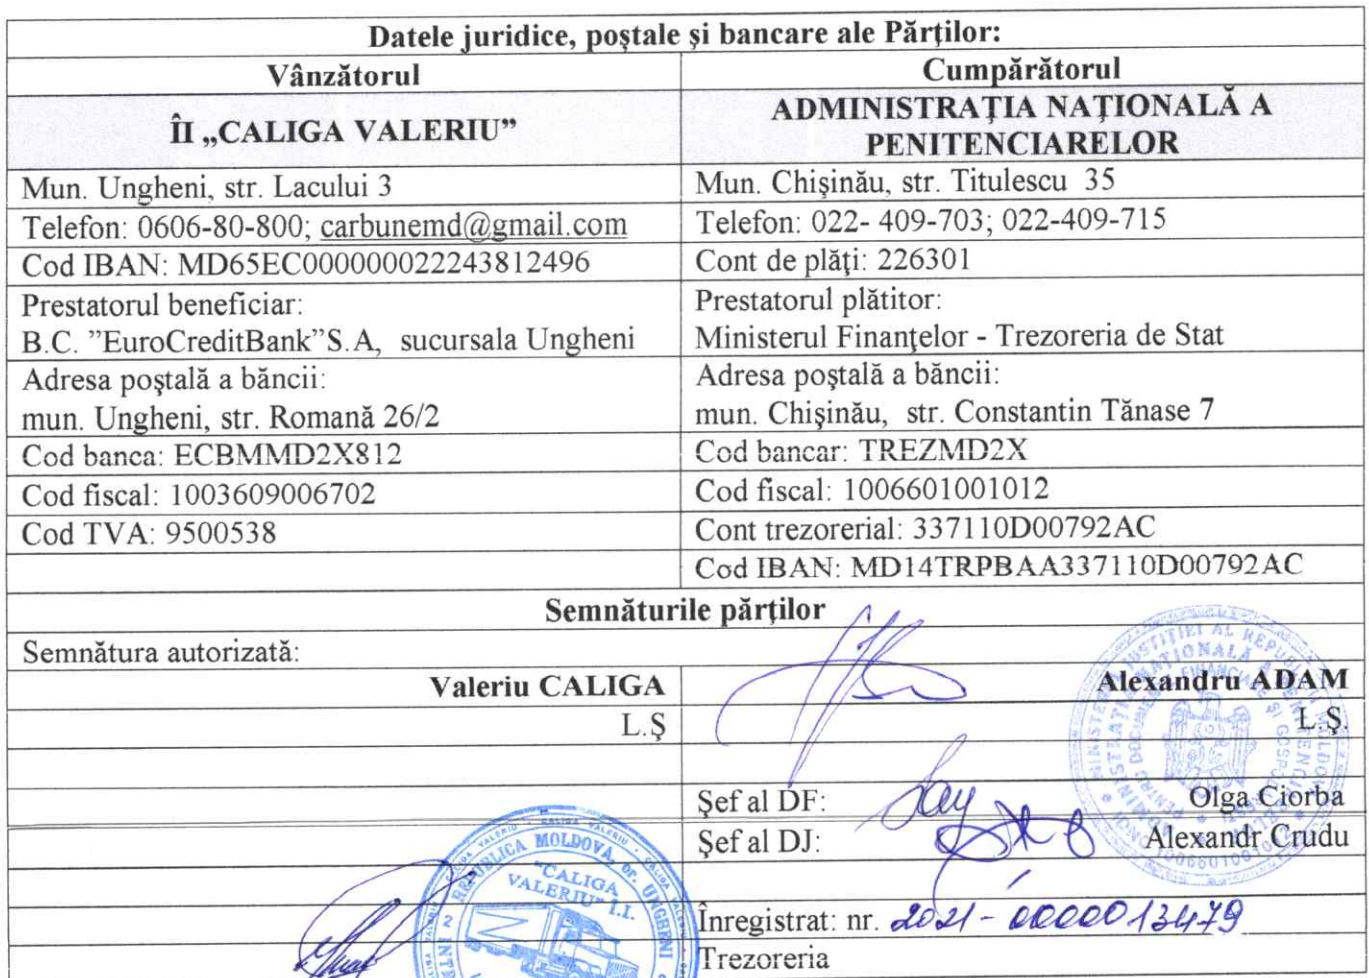 Datele juridice, poştale şi bancare ale Părţilor:
Vânzătorul
Cumpărătorul
ÎI „CALIGA VALERIU”
ADMINISTRAŢIA NAŢIONALĂ A
PENITENCIARELOR
Mun. Ungheni, str. Lacului 3
Mun. Chişinău, str. Titulescu 35
Telefon: 0606-80-800; carbunemd@gmail.com
Telefon: 022- 409-703; 022-409-715
Cod IBAN: MD65EC000000022243812496
Cont de plăţi: 226301
Prestatorul beneficiar:
B.C. ”EuroCreditBank”S.A, sucursala Ungheni
Prestatorul plătitor:
Ministerul Finanţelor - Trezoreria de Stat
Adresa poştală a băncii:
mun. Ungheni, str. Romană 26/2
Adresa poştală a băncii:
mun. Chişinău, str. Constantin Tănase 7
Cod banca: ECBMMD2X812
Cod bancar: TREZMD2X
Cod fiscal: 1003609006702
Cod fiscal: 1006601001012
Cod TVA: 9500538
Cont trezorerial: 337110D00792AC
Cod IBAN: MD14TRPBAA337110D00792AC
Semnăturile părţilor
Semnătura autorizată:
Valeriu CALIGA
Alexandru ADAM
L.Ş
L.Ş.
Şef al DF:
Olga Ciorba
Şef al DJ:
Alexandr Crudu
REPUBLICA MOLDOVA, or. UNGHENI
"CALIGA
VALERIU" Î.I.
Înregistrat: nr. 2021-0000013479
Trezoreria